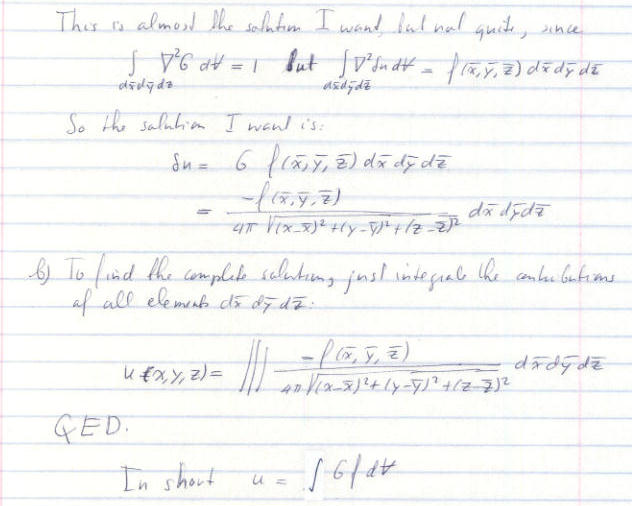 This is almost the solution I want, but not quite, since
∫ ∇²G dV̶ = 1 but ∫ ∇²δu dV̶ = f(x̄, ȳ, z̄) dx̄ dȳ dz̄
dx̄dȳdz̄ dx̄dȳdz̄
So the solution I want is:
δu = G f(x̄, ȳ, z̄) dx̄ dȳ dz̄
= -f(x̄, ȳ, z̄) / 4π √(x-x̄)² + (y-ȳ)² + (z-z̄)² dx̄ dȳ dz̄
b) To find the complete solution, just integrate the contributions
of all elements dx̄ dȳ dz̄:
u(x, y, z) = ∭ -f(x̄, ȳ, z̄) / 4π √(x-x̄)² + (y-ȳ)² + (z-z̄)² dx̄ dȳ dz̄
QED.
In short u = ∫ G f dV̶